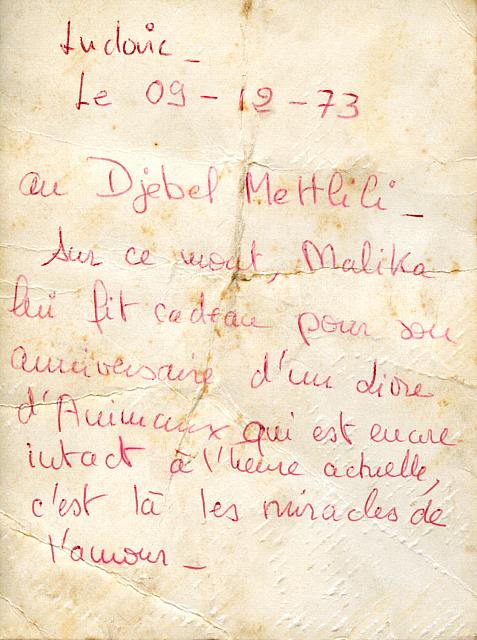 Ludovic_
Le 09-12-73
au Djebel Mettlili_
Sur ce mont, Malika
lui fit cadeau pour son
anniversaire d'un Livre
d'Animaux qui est encore
intact à l'heure actuelle,
c'est là les miracles de
l'amour_